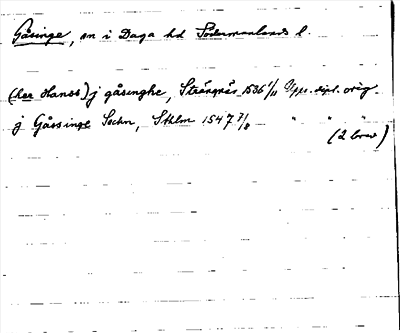 Gåsinge, sn i Daga hd Södermanlands l.
(her Hanss) j gåsinghe, Strängnäs 1536 1/11 Upps. dipl. orig.
j Gåssinge Sochn, Sthlm 1547 7/8 " " "
(2 brev)